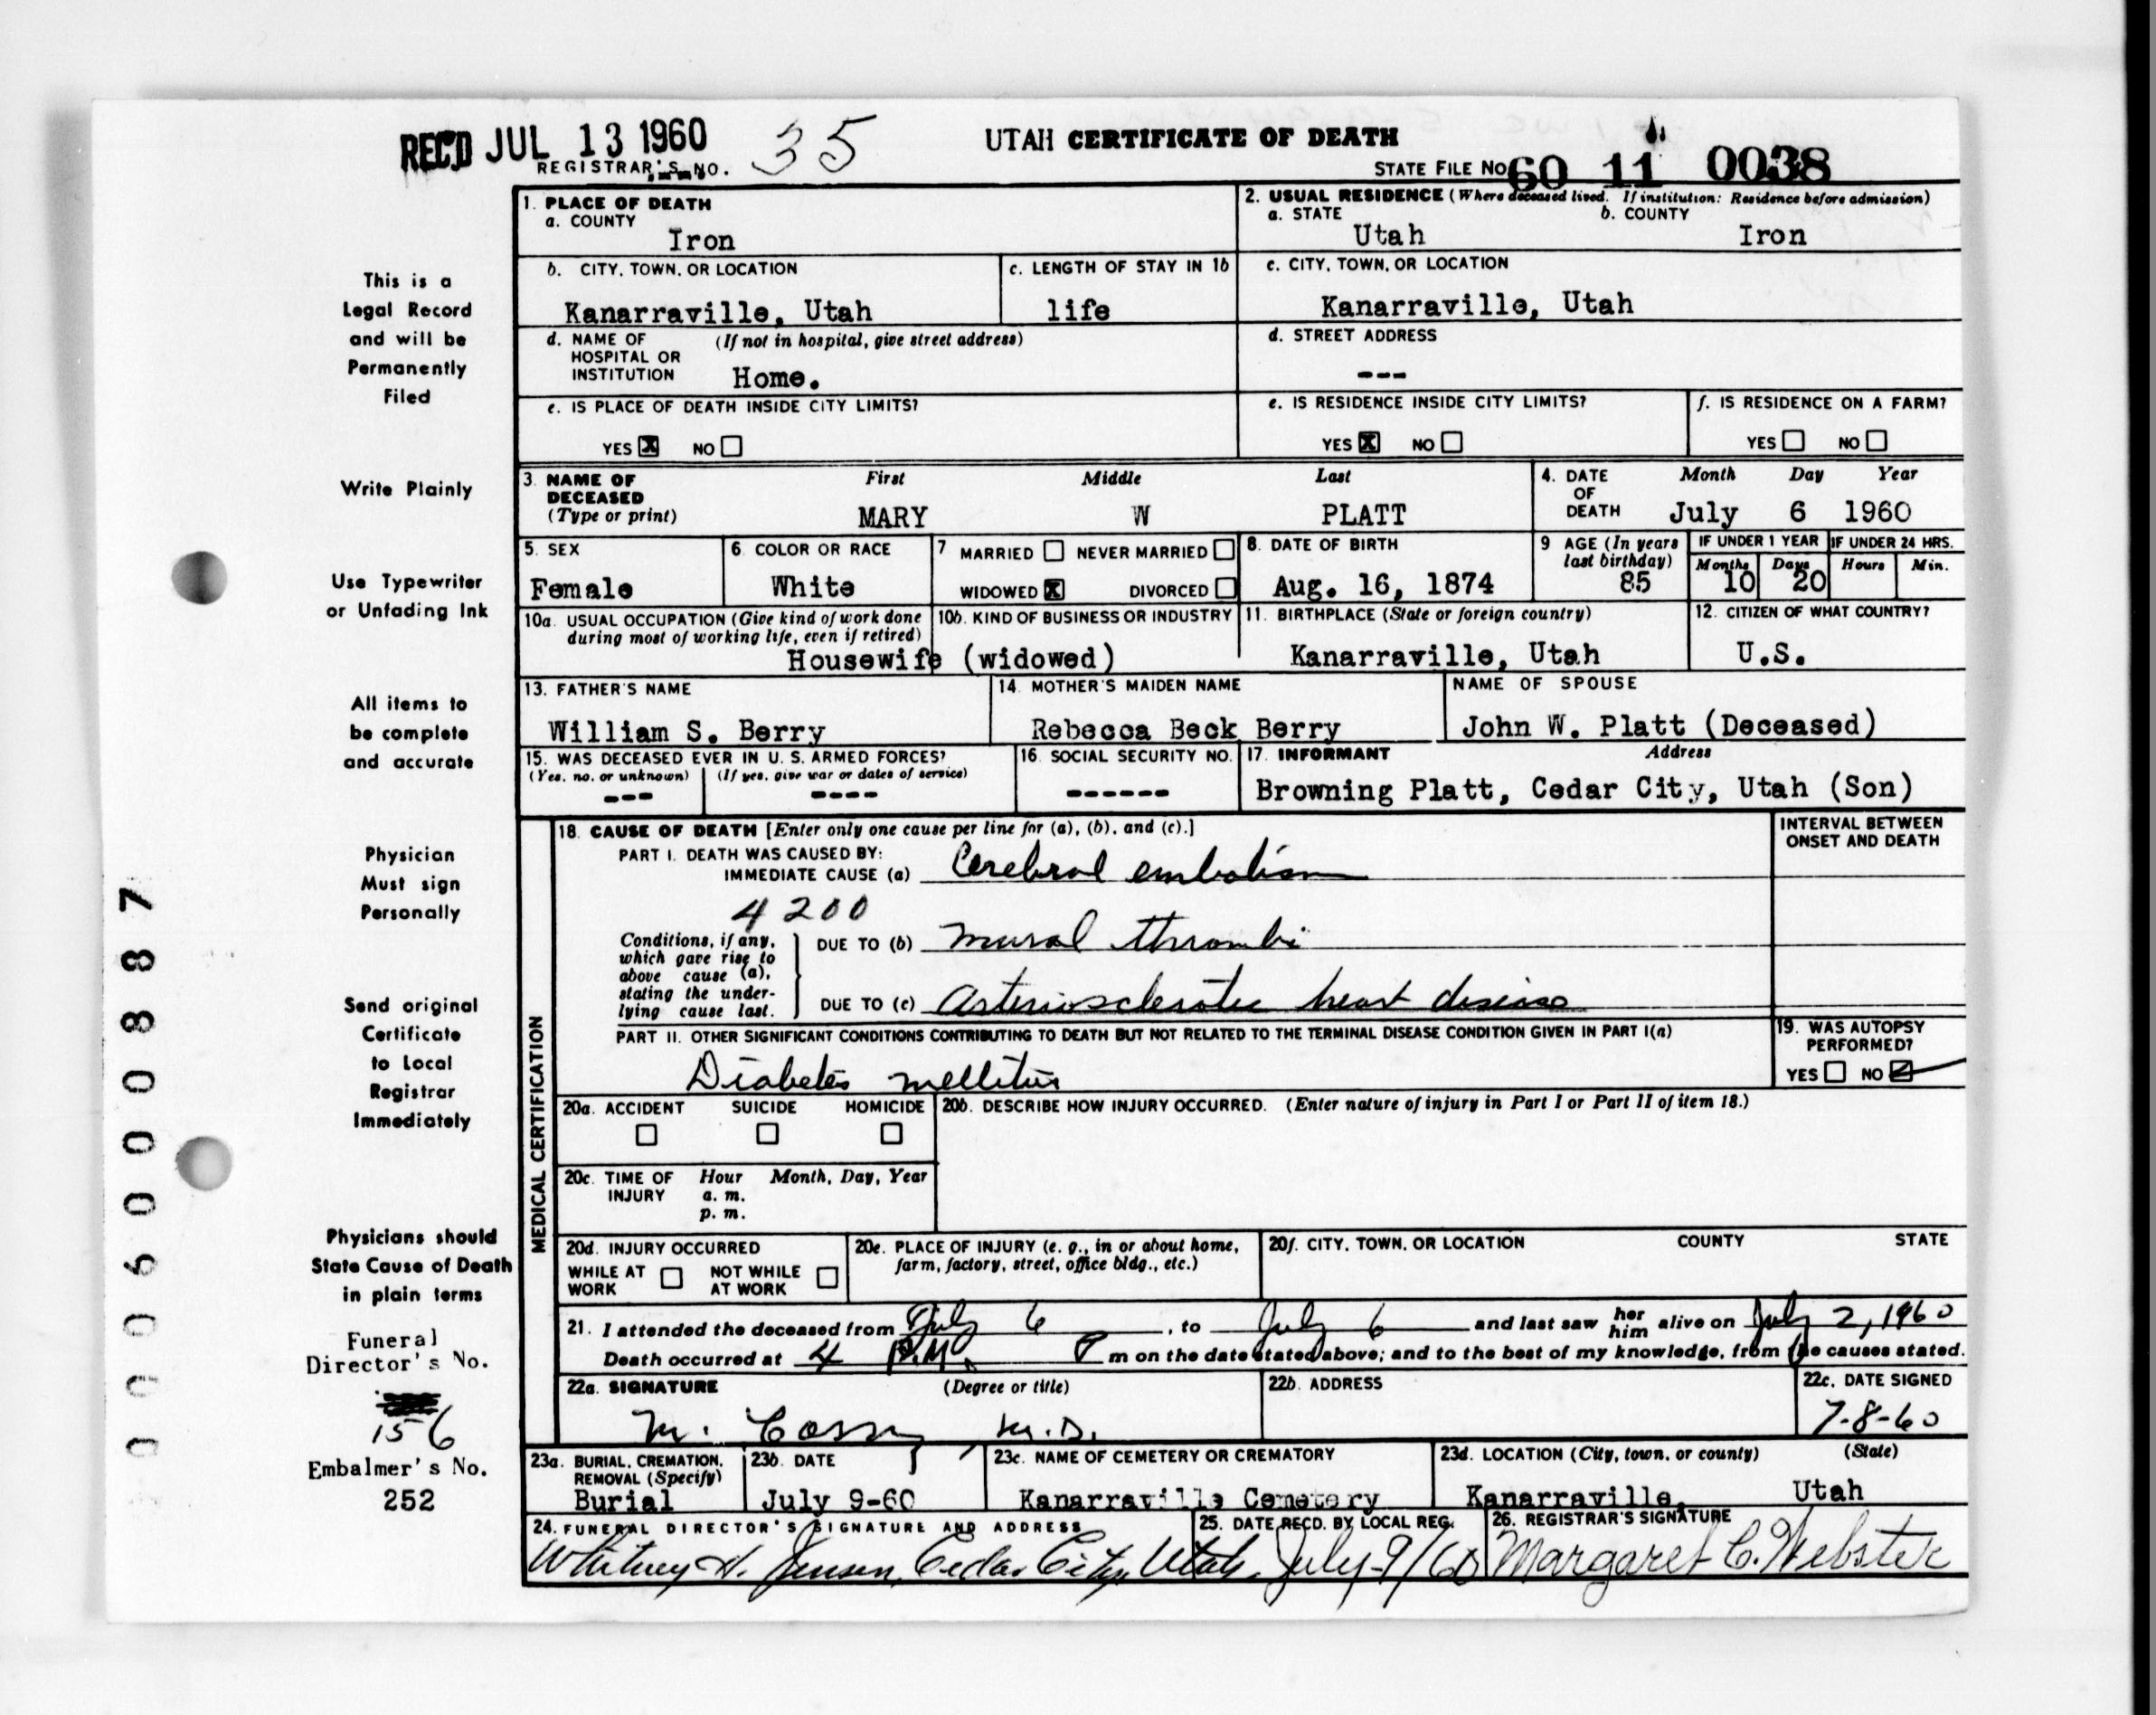 REC'D JUL 13 1960
REGISTRAR'S NO. 35
UTAH CERTIFICATE OF DEATH
STATE FILE NO. 60 11 0038
1. PLACE OF DEATH
a. COUNTY
Iron
2. USUAL RESIDENCE (Where deceased lived. If institution: Residence before admission)
a. STATE b. COUNTY
Utah Iron
b. CITY, TOWN, OR LOCATION
Kanarraville, Utah
c. LENGTH OF STAY IN 1b
life
c. CITY, TOWN, OR LOCATION
Kanarraville, Utah
d. NAME OF (If not in hospital, give street address)
HOSPITAL OR
INSTITUTION Home.
d. STREET ADDRESS
---
e. IS PLACE OF DEATH INSIDE CITY LIMITS?
YES X NO
e. IS RESIDENCE INSIDE CITY LIMITS?
YES X NO
f. IS RESIDENCE ON A FARM?
YES NO
3. NAME OF DECEASED (Type or print)
First Middle Last
MARY W PLATT
4. DATE OF DEATH
Month Day Year
July 6 1960
5. SEX
Female
6. COLOR OR RACE
White
7 MARRIED NEVER MARRIED
WIDOWED X DIVORCED
8. DATE OF BIRTH
Aug. 16, 1874
9 AGE (In years
last birthday)
85
IF UNDER 1 YEAR
Months Days
10 20
IF UNDER 24 HRS.
Hours Min.
10a. USUAL OCCUPATION (Give kind of work done
during most of working life, even if retired)
10b. KIND OF BUSINESS OR INDUSTRY
Housewife (widowed)
11. BIRTHPLACE (State or foreign country)
Kanarraville, Utah
12. CITIZEN OF WHAT COUNTRY?
U.S.
13. FATHER'S NAME
William S. Berry
14. MOTHER'S MAIDEN NAME
Rebecca Beck Berry
NAME OF SPOUSE
John W. Platt (Deceased)
15. WAS DECEASED EVER IN U. S. ARMED FORCES?
(Yes, no, or unknown) (If yes, give war or dates of service)
--- ----
16. SOCIAL SECURITY NO.
------
17. INFORMANT Address
Browning Platt, Cedar City, Utah (Son)
MEDICAL CERTIFICATION
18. CAUSE OF DEATH [Enter only one cause per line for (a), (b), and (c).]
PART I. DEATH WAS CAUSED BY:
IMMEDIATE CAUSE (a) Cerebral embolism
4200
Conditions, if any,
which gave rise to
above cause (a),
stating the under-
lying cause last.
DUE TO (b) mural thrombi
DUE TO (c) Arteriosclerotic heart disease
INTERVAL BETWEEN
ONSET AND DEATH
PART II. OTHER SIGNIFICANT CONDITIONS CONTRIBUTING TO DEATH BUT NOT RELATED TO THE TERMINAL DISEASE CONDITION GIVEN IN PART I(a)
Diabetes mellitus
19. WAS AUTOPSY
PERFORMED?
YES NO
20a. ACCIDENT SUICIDE HOMICIDE
20b. DESCRIBE HOW INJURY OCCURRED. (Enter nature of injury in Part I or Part II of item 18.)
20c. TIME OF INJURY
Hour Month, Day, Year
a. m.
p. m.
20d. INJURY OCCURRED
WHILE AT WORK NOT WHILE AT WORK
20e. PLACE OF INJURY (e. g., in or about home,
farm, factory, street, office bldg., etc.)
20f. CITY, TOWN, OR LOCATION COUNTY STATE
21. I attended the deceased from July 6, to July 6 and last saw her him alive on July 2, 1960
Death occurred at 4 P.M. P m on the date stated above; and to the best of my knowledge, from the causes stated.
22a. SIGNATURE (Degree or title)
M. D.
22b. ADDRESS
22c. DATE SIGNED
7-8-60
23a. BURIAL, CREMATION,
REMOVAL (Specify)
Burial
23b. DATE
July 9-60
23c. NAME OF CEMETERY OR CREMATORY
Kanarraville Cemetery
23d. LOCATION (City, town, or county) (State)
Kanarraville, Utah
24. FUNERAL DIRECTOR'S SIGNATURE AND ADDRESS
Whitney H. Jensen, Cedar City, Utah.
25. DATE RECD. BY LOCAL REG.
July-9/60
26. REGISTRAR'S SIGNATURE
Margaret C. Webster
This is a
Legal Record
and will be
Permanently
Filed
Write Plainly
Use Typewriter
or Unfading Ink
All items to
be complete
and accurate
Physician
Must sign
Personally
Send original
Certificate
to Local
Registrar
Immediately
Physicians should
State Cause of Death
in plain terms
Funeral
Director's No.
156
Embalmer's No.
252
0006000887